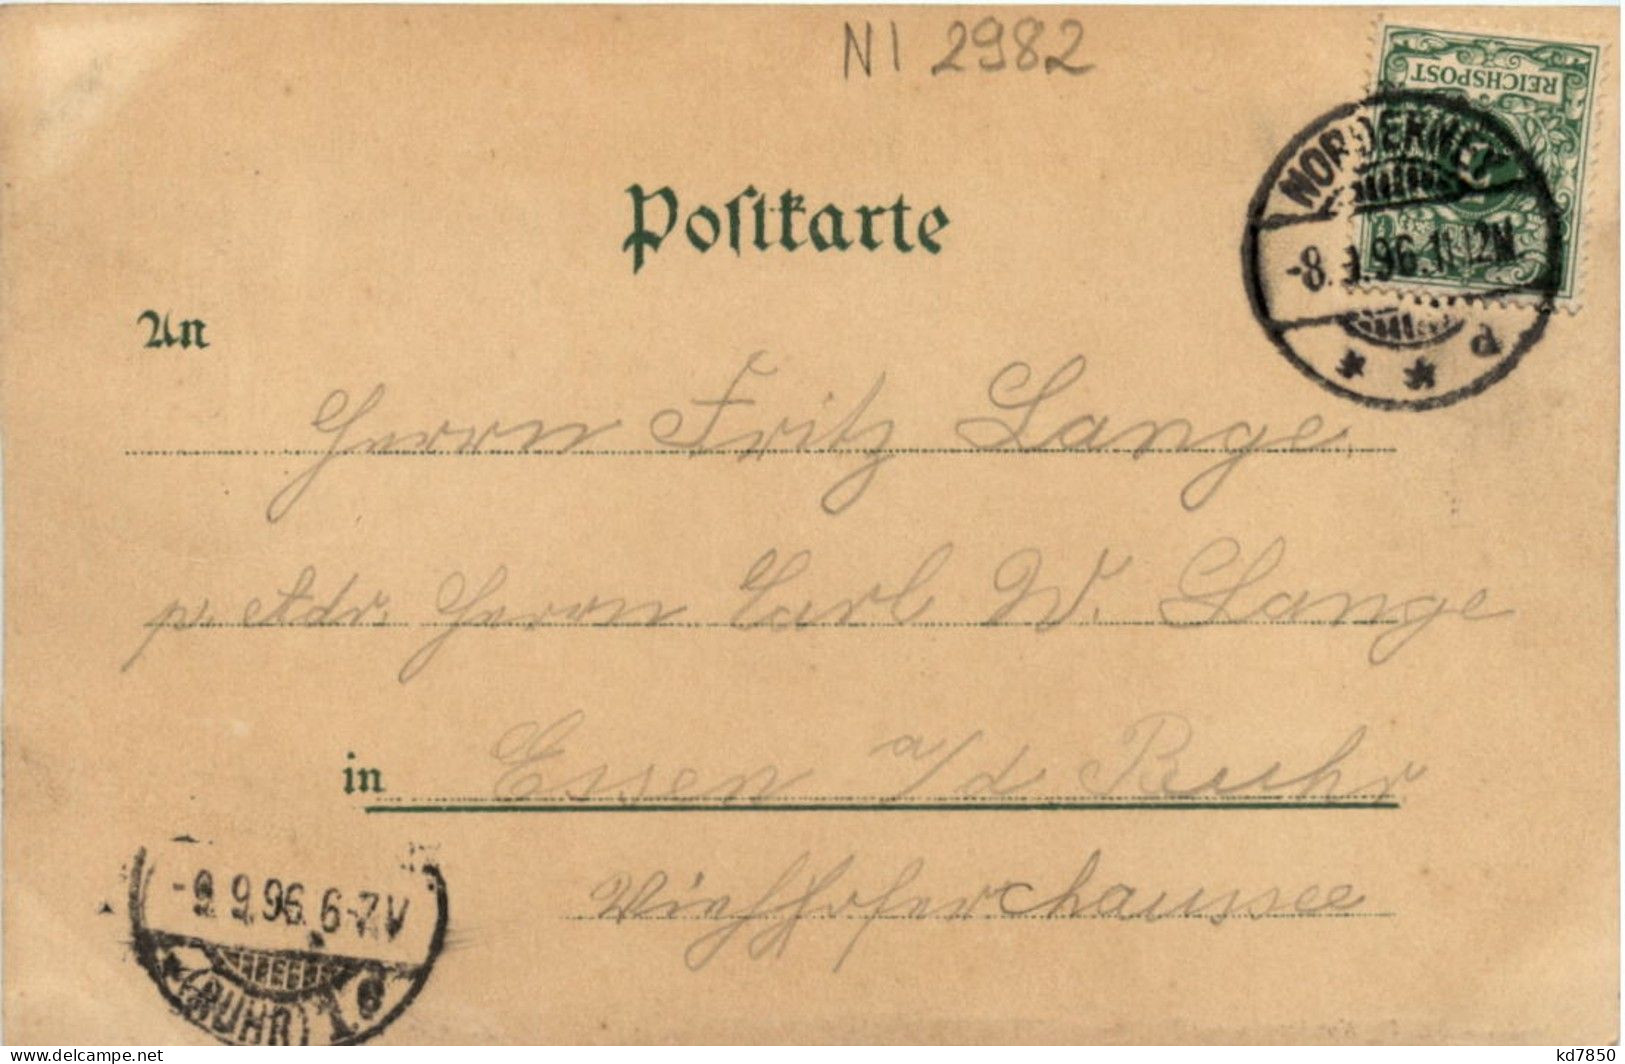 NI 2982
REICHSPOST
NORDERNEY
-8.9.96.11-12N.
* * d
Postkarte
An
Herrn Fritz Lange
p. Adr. Herrn Carl W. Lange
in Essen a/d Ruhr
Viehhoferchaussee
-9.9.96.6-7V
* (RUHR) 1 e
www.delcampe.net
kd7850